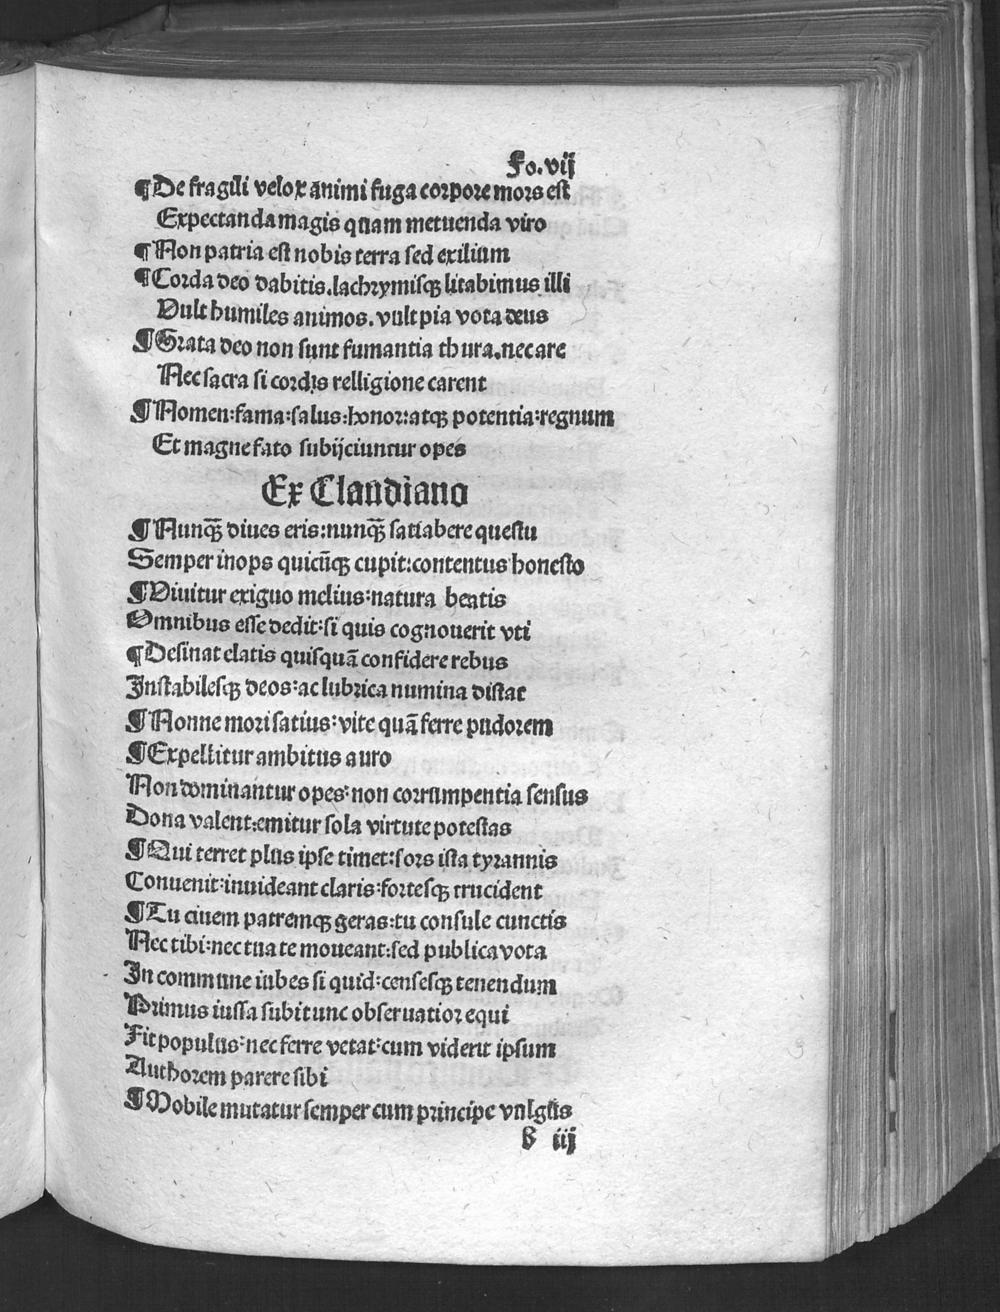 Fo.vij
¶De fragili velox animi fuga corpore mors est
Expectanda magis quam metuenda viro
¶Non patria est nobis terra sed exilium
¶Corda deo dabitis.lachrymisqꝫ litabimus illi
Vult humiles animos.vult pia vota deus
¶Grata deo non sunt fumantia thura.nec are
Nec sacra si cordis relligione carent
¶Nomen:fama:salus:honor:atqꝫ potentia:regnum
Et magne fato subijciuntur opes
Ex Claudiano
¶Nunqꝫ̄ diues eris:nunqꝫ̄ satiabere questu
Semper inops quicūqꝫ cupit:contentus honesto
¶Viuitur exiguo melius:natura beatis
Omnibus esse dedit:si quis cognouerit vti
¶Desinat elatis quisquā confidere rebus
Instabilesqꝫ deos:ac lubrica numina distat
¶Nonne mori satius:vite quā ferre pudorem
¶Expellitur ambitus auro
Non dominantur opes:non corrumpentia sensus
Dona valent:emitur sola virtute potestas
¶Qui terret plus ipse timet:sors ista tyrannis
Conuenit:inuideant claris:fortesqꝫ trucident
¶Tu ciuem patremqꝫ geras:tu consule cunctis
Nec tibi:nec tua te moueant:sed publica vota
In commune iubes si quid:censesqꝫ tenendum
Primus iussa subi tunc obseruatior equi
Fit populus:nec ferre vetat:cum viderit ipsum
Authorem parere sibi
¶Mobile mutatur semper cum principe vulgus
B iij